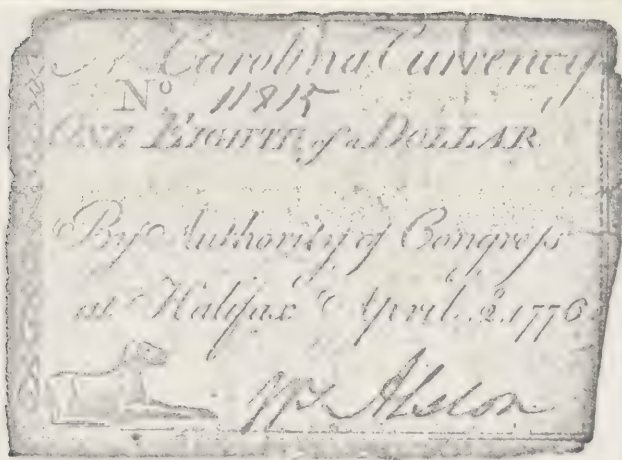 N. Carolina Currency
No 11815
ONE EIGHTH of a DOLLAR
By Authority of Congreſs
at Halifax April. 2. 1776